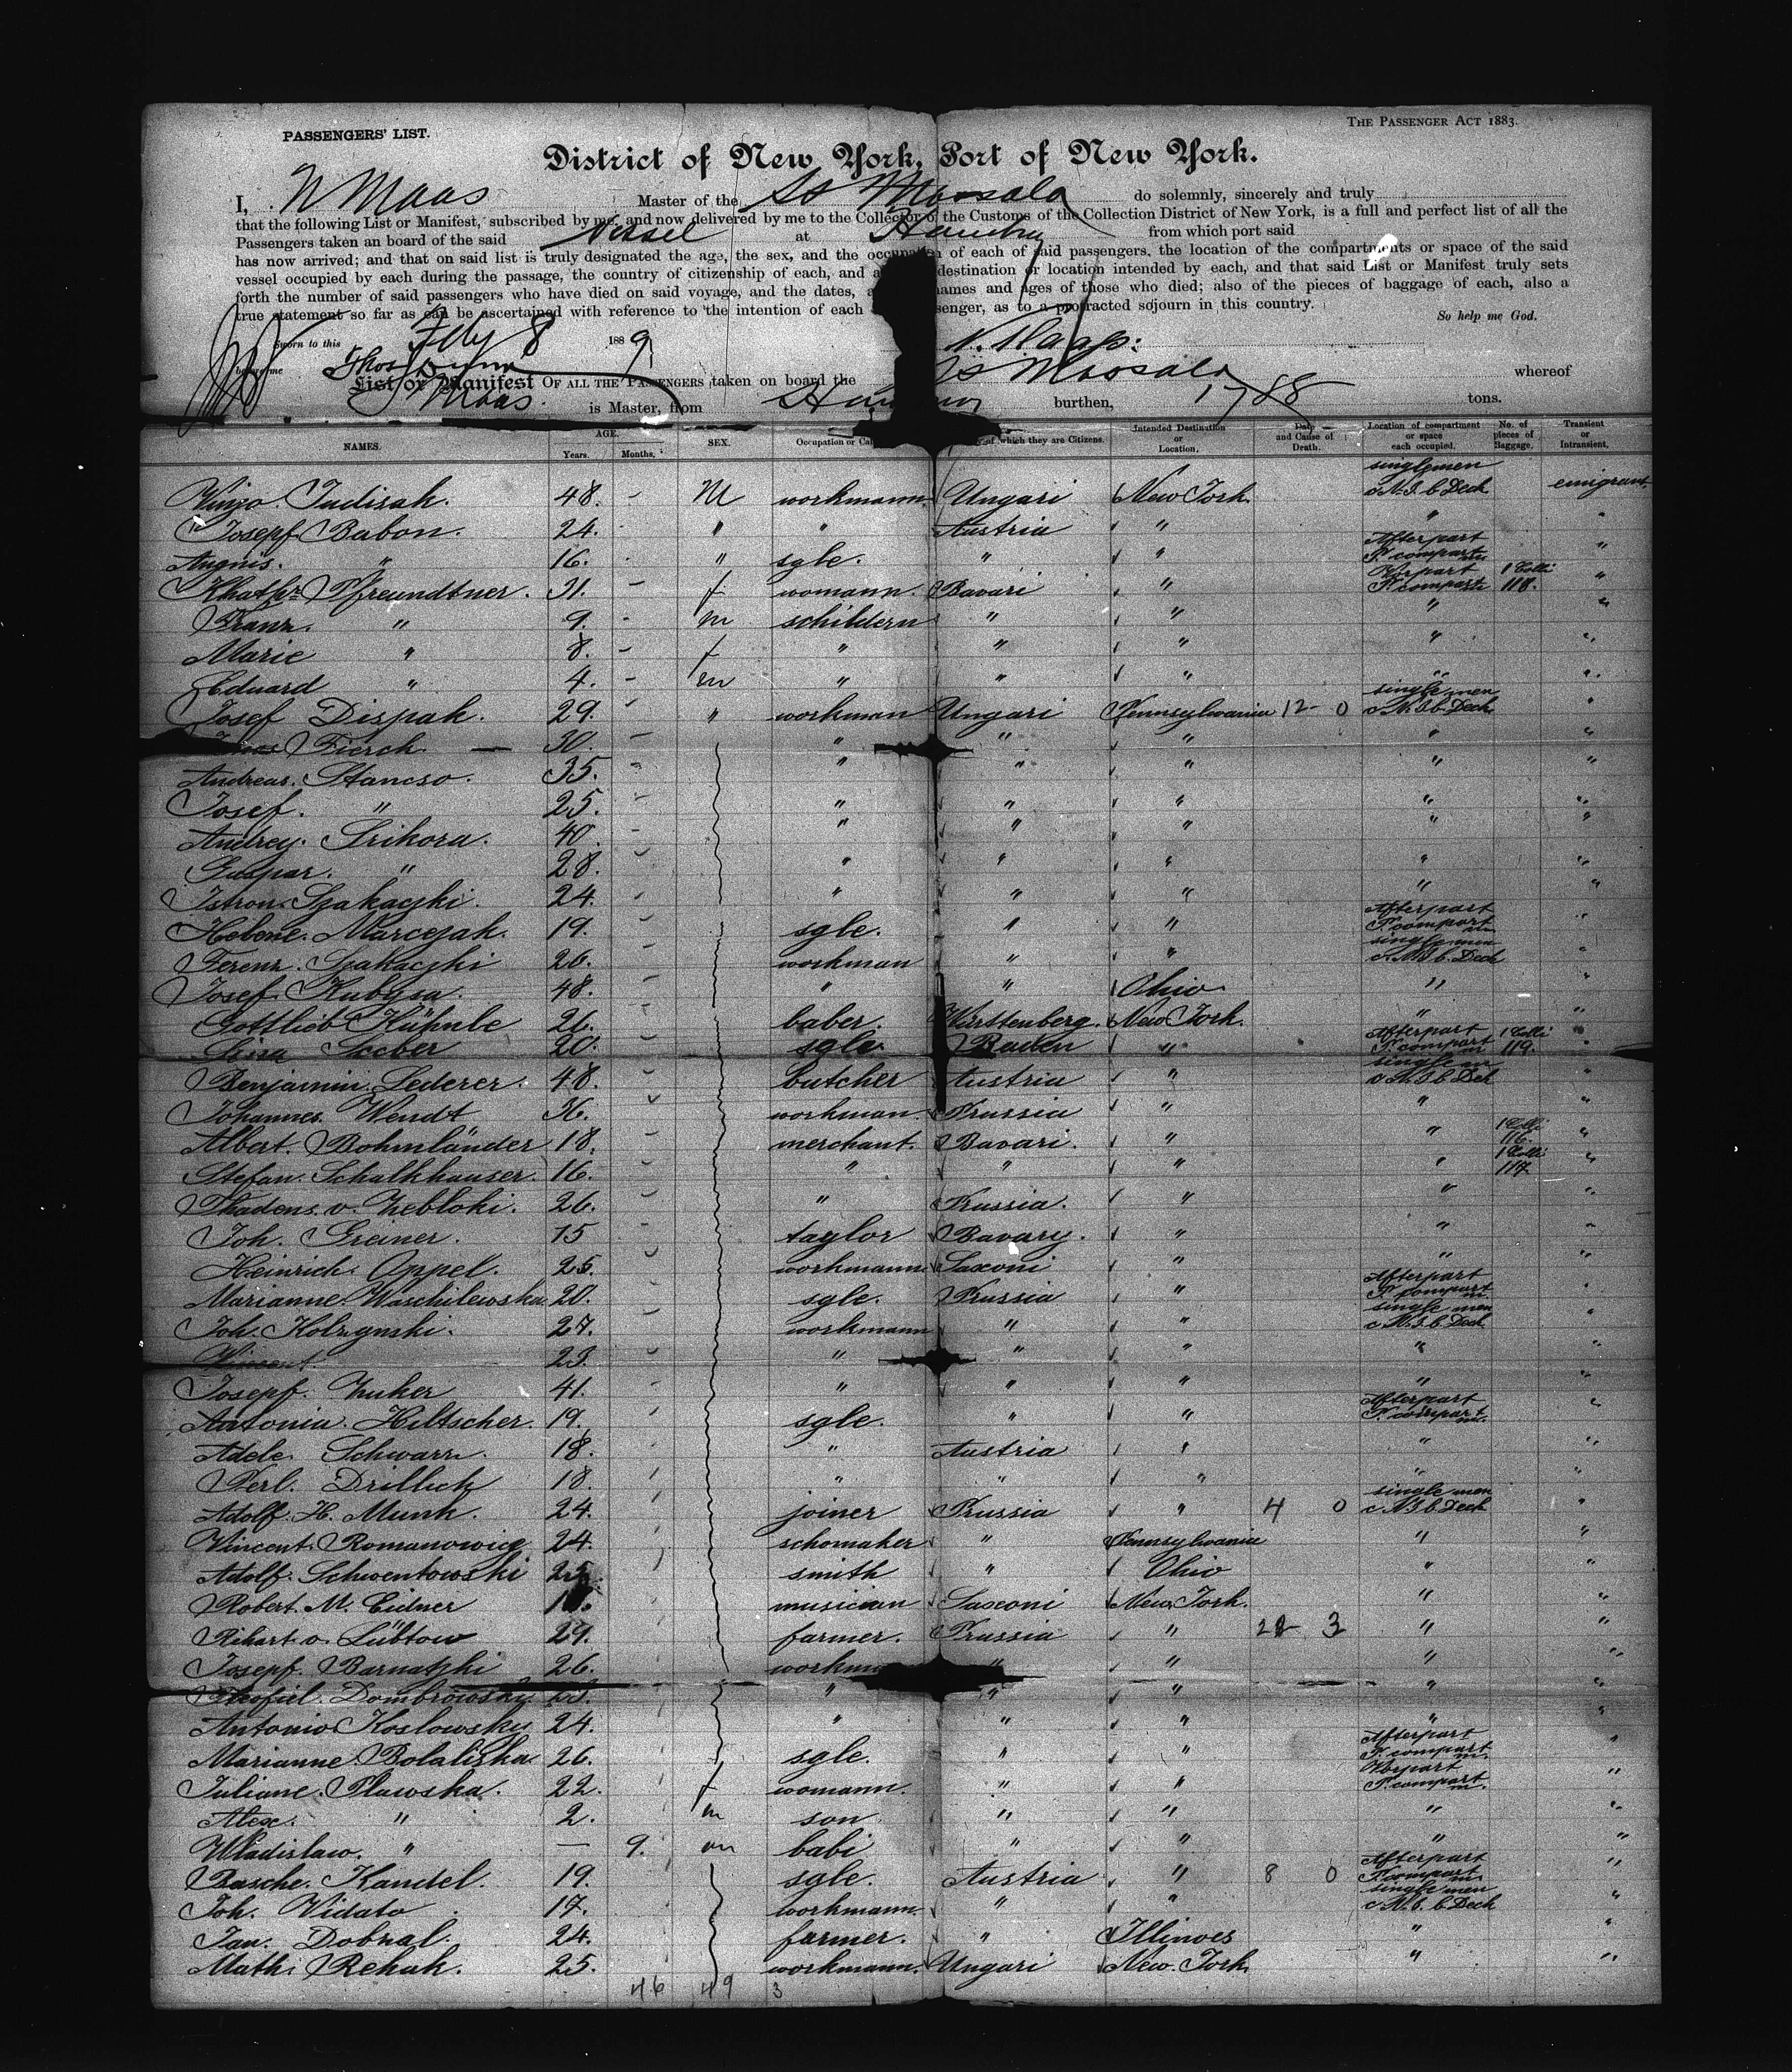 PASSENGERS' LIST.
THE PASSENGER ACT 1883.
District of New York, Port of New York.
I, N Maas Master of the SS Moosala do solemnly, sincerely and truly
that the following List or Manifest, subscribed by me, and now delivered by me to the Collector of the Customs of the Collection District of New York, is a full and perfect list of all the
Passengers taken an board of the said Vessel at from which port said
has now arrived; and that on said list is truly designated the age, the sex, and the occupation of each of said passengers, the location of the compartments or space of the said
vessel occupied by each during the passage, the country of citizenship of each, and destination or location intended by each, and that said List or Manifest truly sets
forth the number of said passengers who have died on said voyage, and the dates, names and ages of those who died; also of the pieces of baggage of each, also a
true statement so far as can be ascertained with reference to the intention of each senger, as to a protracted sojourn in this country.
So help me God.
Sworn to this Feby 8 1889
before me N. Maass.
List or Manifest OF ALL THE PASSENGERS taken on board the SS Moosala whereof
Maas. is Master, from burthen, 1788 tons.
NAMES. AGE. Years. Months. SEX. Occupation or of which they are Citizens. Intended Destination or Location. Date and Cause of Death. Location of compartment or space each occupied. No. of pieces of Baggage. Transient or Intransient.
Tudisah. 48. - M workmann Ungari New York. singlemen Deck emigrant
Josepf Babon. 24. - " " Austria " " "
16. - " sgle. " " Afterpart compart "
Pfreundtner. 31. - f womann. Bavari " compart 1 Colli 118. "
Franz. " 9. - m schildern " " " "
Marie " 8. - f " " " " "
Eduard " 4. - m " " " " "
Josef Dispak. 29. - " workman Ungari Pennsylvania 12- 0 single men Deck "
Fierck 30. - " " " " "
Andreas. Stancso. 35. - " " " " "
Josef. " 25. - " " " " "
Andrey. Srikora. 40. - " " " " "
Gaspar. " 28. " " " " "
Szakaczki. 24. " " " " "
Helene. Marcezak. 19. sgle. " " Afterpart compart "
Ferenz. Szakaczki 26. workman " " single men Deck "
Josef. Kubysa. 48. " " Ohio " "
Gottlieb Kühnle 26. baber. Würstenberg. New York. " "
Lina Seeber 20. sgle Baden " Afterpart compart 1 Colli 119. "
Benjamin. Lederer. 48. butcher Austria " Deck "
Johannes. Wendt 36. workman. Prussia " " "
Albert. Bohmländer 18. merchant. Bavari. " " 1 Colli 116. "
Stefan. Schalkhauser. 16. " " " " 1 Colli 117. "
v. Zebloki. 26. " Prussia. " " "
Joh. Greiner. 15 taylor Bavary. " " "
Heinrich. Oppel. 25. workmann Saxoni " " "
Marianne. Waschilewska 20. sgle. Prussia " Afterpart compart "
Joh. Kolzynski. 27. workmann " " single men Deck "
Vincent 23. " " " " "
Josepf. Zuker 41. " " " " "
Antonia. Hiltscher. 19. sgle. " " Afterpart compart "
Adele Schwarz. 18. " Austria " " "
Perl. Drillich 18. " " " " "
Adolf. H. Munk. 24. joiner Prussia " 4 0 single men Deck "
Vincent. Romanowicz 24. schomaker " Pennsylvania " "
Adolf. Schwentowski smith " Ohio " "
Robert. M. Eidner musician Saxoni New York. " "
Rihart v. Lübtow 29. farmer. Prussia " 3 " "
Josepf. Barnatzki 26. " " " "
Teofiel. Dombrowsky 23. " " " " "
Antonio Koslowsky 24. " " " " "
Marianne. 26. f sgle. " " Afterpart compart "
Juliane. Plawska. 22. f womann. " " compart "
Alex. " 2. m son " " " "
Wladislaw. " — 9. m babi " " " "
Rasche. Kandel. 19. sgle. Austria " 8 0 Afterpart compart "
Joh. Vidato 17. workmann. " " single men Deck "
Jan. Dobzal. 24. farmer. " Illinoes " "
Math. Rehak. 25. workmann. Ungari New. York. " "
46 49 3